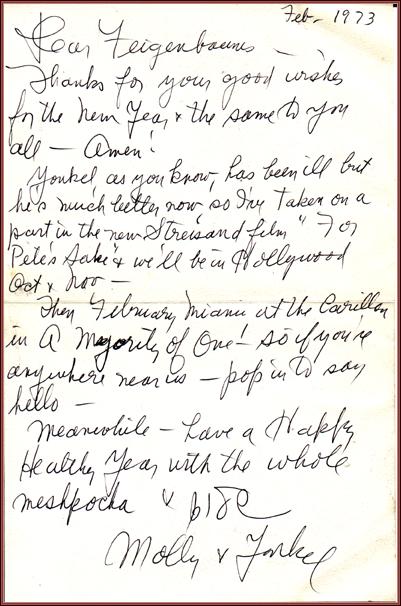 Feb - 1973
Dear Feigenbaums —
Thanks for your good wishes
for the New Year & the same to you
all — Amen!
Yankel, as you know, has been ill but
he's much better now so I've taken on a
part in the new Streisand film "For
Pete's Sake" & we'll be in Hollywood
Oct & Nov —
Then February, Miami at the Carillon
in A Majority of One! — so if you're
anywhere near us — pop in to say
hello —
Meanwhile — have a Happy
Healthy Year with the whole
meshpocha & שלום
Molly & Yankel